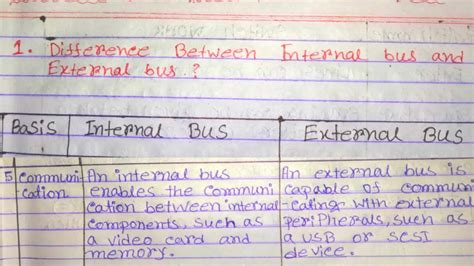 1. Difference Between Internal bus and
External bus ?
Basis Internal BUS External BUS
5 Communi An internal bus An external bus is
-cation. enables the Communi capable of commun
cation between internal -cating with external
components, such as periPherals, such as
a video card and a USB or SCSI
memory. device.